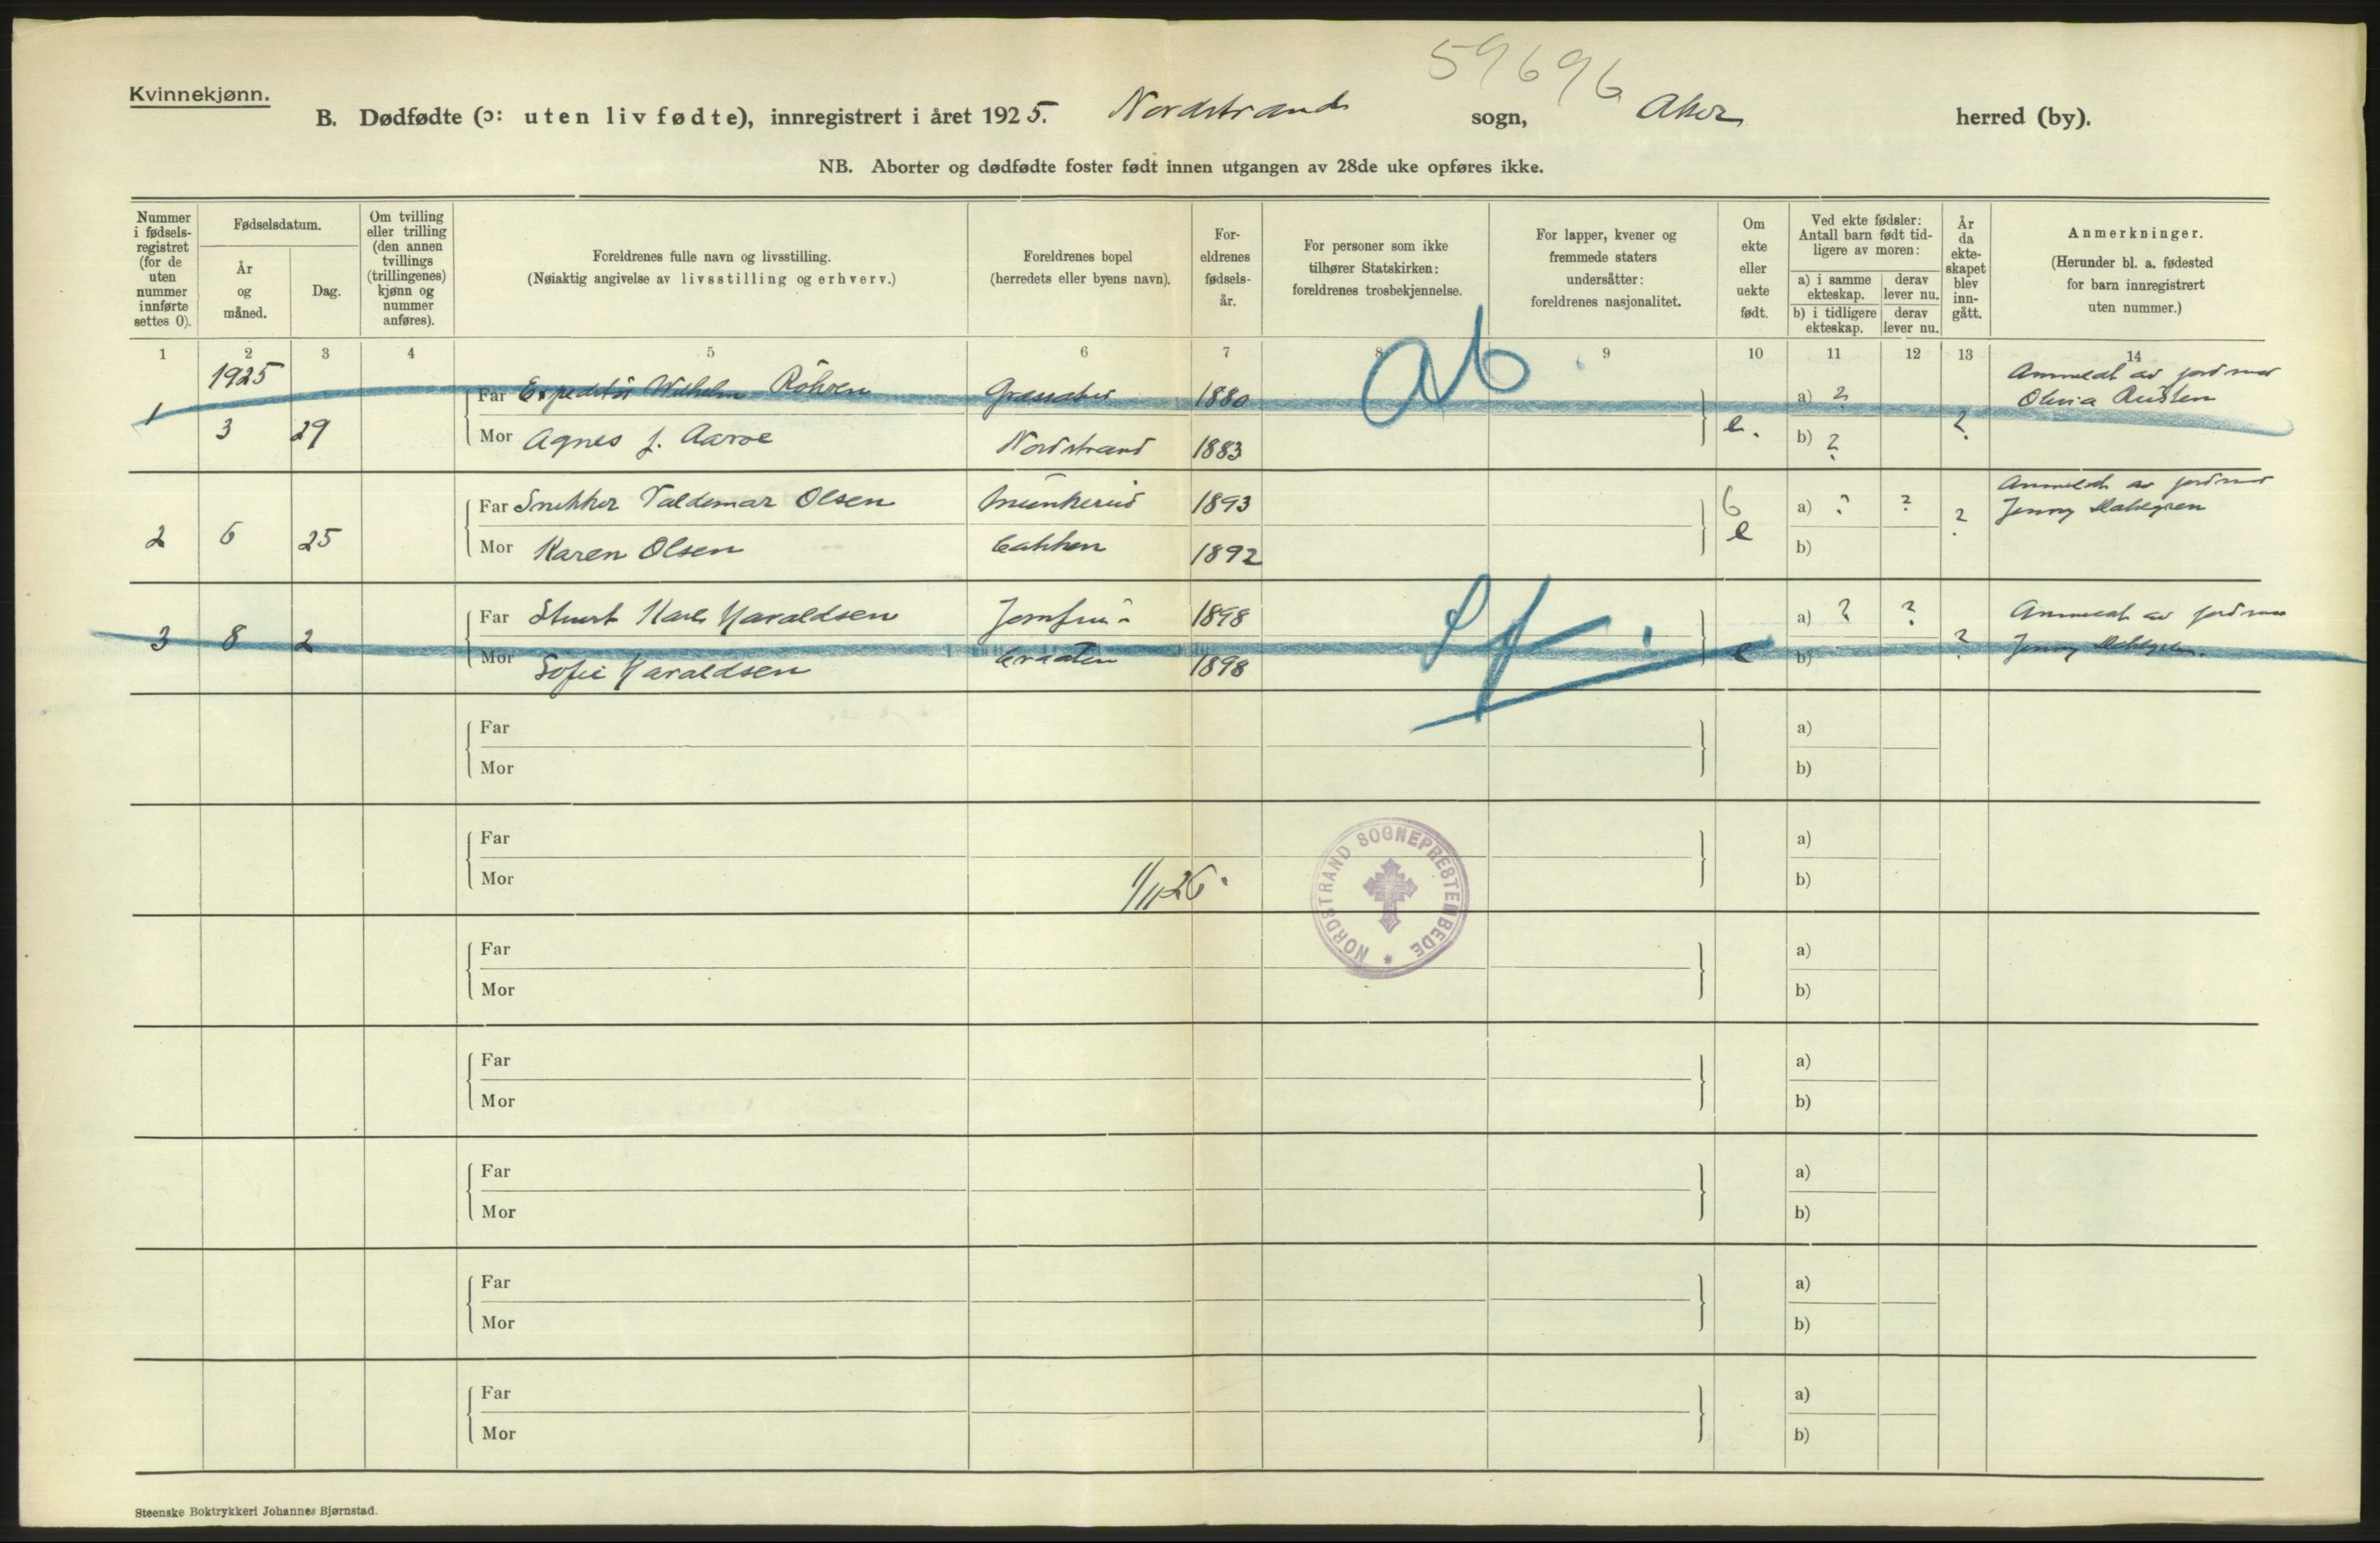 59696
Kvinnekjønn.
B. Dødfødte (ɔ: uten liv fødte), innregistrert i året 1925. Nordstrand sogn, Aker herred (by).
NB. Aborter og dødfødte foster født innen utgangen av 28de uke opføres ikke.
Nummer i fødsels-registret (for de uten nummer innførte settes 0).
Fødselsdatum.
År og måned.
Dag.
Om tvilling eller trilling (den annen tvillings (trillingenes) kjønn og nummer anføres).
Foreldrenes fulle navn og livsstilling.
(Nøiaktig angivelse av livsstilling og erhverv.)
Foreldrenes bopel
(herredets eller byens navn).
For-eldrenes fødsels-år.
For personer som ikke tilhører Statskirken: foreldrenes trosbekjennelse.
For lapper, kvener og fremmede staters undersåtter: foreldrenes nasjonalitet.
Om ekte eller uekte født.
Ved ekte fødsler: Antall barn født tid-ligere av moren:
a) i samme ekteskap.
derav lever nu.
b) i tidligere ekteskap.
derav lever nu.
År da ekte-skapet blev inn-gått.
Anmerkninger.
(Herunder bl. a. fødested for barn innregistrert uten nummer.)
1 2 3 4 5 6 7 8 9 10 11 12 13 14
1925
Ab
1 3 29
Far Expeditør Wilhelm 1880 a) ?
Mor Agnes J. Aaroe Nordstrand 1883 e. b) ? ?
Anmeldt av jordmor
Olivia
2 6 25
Far Snekker Valdemar Olsen Munkerud 1893 6 a) ? ? ?
Mor Karen Olsen bakken 1892 e b)
Anmeldt av jordmor
Jenny
3 8 2
Far Karl Haraldsen Jomfru- 1898 a) ? ? ?
Mor Sofie Haraldsen braaten 1898 e b)
Anmeldt av jordmor
Jenny
Far a)
Mor b)
Far a)
Mor b)
1/11-26.
NORDSTRAND SOGNEPRESTEMBEDE
Far a)
Mor b)
Far a)
Mor b)
Far a)
Mor b)
Far a)
Mor b)
Far a)
Mor b)
Steenske Boktrykkeri Johannes Bjørnstad.